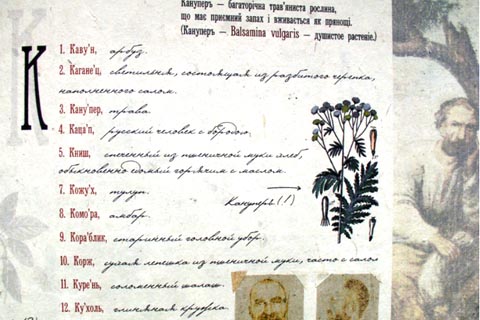 Кануперъ — багаторічна трав'яниста рослина,
що має приємний запах і вживається як прянощі.
(Кануперъ — Balsamina vulgaris — душистое растеніе.)
К
К
1. Каву'н, арбуз.
2. Кагане'ц, светильня, состоящая из разбитого черепка,
наполненного салом.
3. Кану'пер, трава.
4. Каца'п, русский человек с бородою.
5. Книш, спеченный из пшеничной муки хлеб,
обыкновенно едомый горячим с маслом.
7. Кожу'х, тулуп.
Кануперъ (!)
8. Комо'ра, амбар.
9. Кора'блик, старинный головной убор.
10. Корж, сухая лепешка из пшеничной муки, часто с салом
11. Куре'нь, соломенный шалаш.
12. Ку'холь, глиняная кружка.